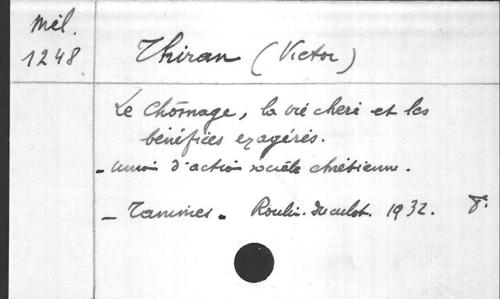 Mél.
1248
Thiran (Victor)
Le Chômage, la vie chère et les
bénéfices exagérés.
- Union d'action sociale chrétienne.
- Tamines. Roulin. 1932. 8.